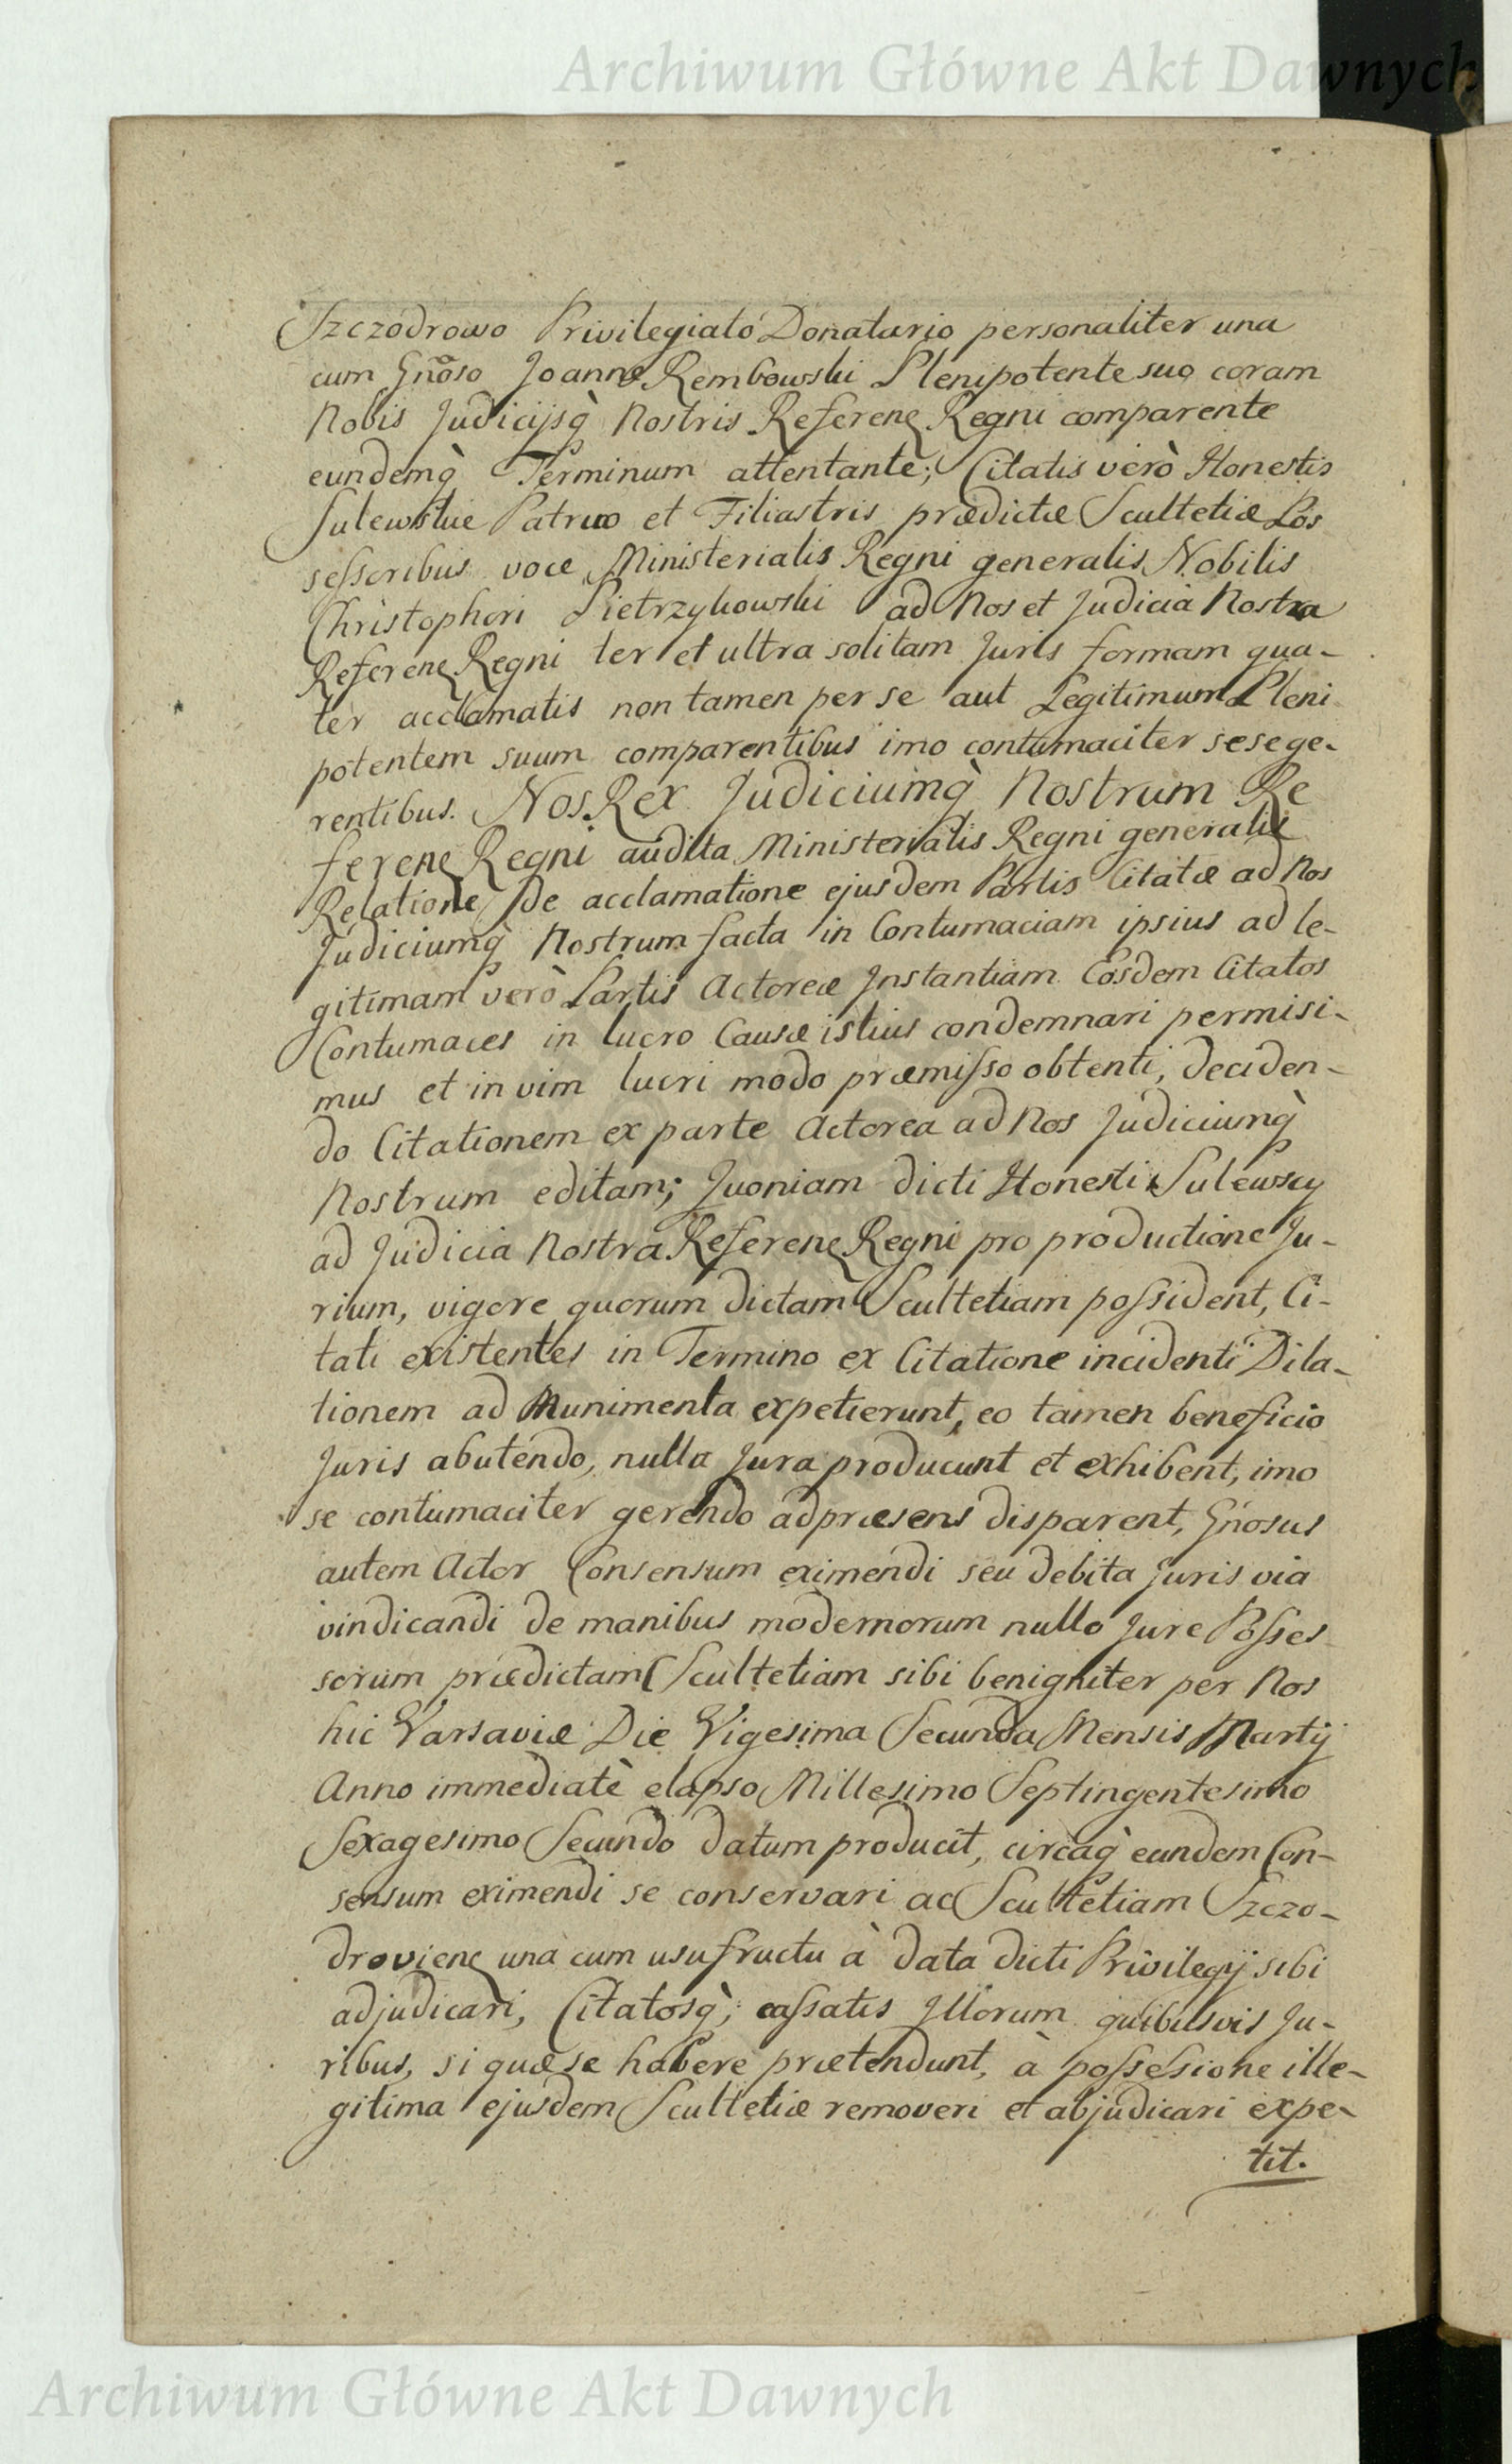 Archiwum Główne Akt Dawnych
Szczodrowo Privilegiato Donatario personaliter una
cum Gnõso Joanne Rembowski Plenipotente suo coram
Nobis Judicijsq̀ Nostris Referenꝫ Regni comparente
eundemq̀ Terminum attentante; Citatis verò Honestis
Sulewskie Patruo et Filiastris prædictæ Scultetiæ Pos
seſsoribus voce Ministerialis Regni generalis Nobilis
Christophori Pietrzykowski ad Nos et Judicia Nostra
Referenꝫ Regni ter et ultra solitam Juris formam qua-
ter acclamatis non tamen per se aut Legitimum Pleni
potentem suum comparentibus imo contumaciter sese ge-
rentibus. Nos Rex Judiciumq̀ Nostrum Re
ferenꝫ Regni audita Ministerialis Regni generalis
Relatione de acclamatione ejusdem Partis Citatæ ad Nos
Judiciumq̀ Nostrum facta in Contumaciam ipsius ad le-
gitimam verò Partis Actoreæ Instantiam Eosdem Citatos
Contumaces in lucro Causæ istius condemnari permisi-
mus et in vim lucri modo præmiſso obtenti, deciden-
do Citationem ex parte Actorea ad Nos Judiciumq̀
Nostrum editam; Quoniam dicti Honesti Sulewscy
ad Judicia Nostra Referenꝫ Regni pro productione Ju-
rium, vigore quorum dictam Scultetiam poſsident, Ci-
tati existentes in Termino ex Citatione incidenti Dila-
tionem ad Munimenta expetierunt, eo tamen beneficio
Juris abutendo, nulla Jura producunt et exhibent, imo
se contumaciter gerendo ad præsens disparent, Gñosus
autem Actor Consensum eximendi seu debita Juris via
vindicandi de manibus modernorum nullo Jure Poſses
sorum prædictam Scultetiam sibi benigniter per Nos
hic Varsaviæ Die Vigesima Secunda Mensis Martij
Anno immediatè elapso Millesimo Septingentesimo
Sexagesimo Secundo datum producit, circaq̀ eundem Con-
sensum eximendi se conservari ac Scultetiam Szczo-
drovienꝫ una cum usufructu à data dicti Privilegij sibi
adjudicari, Citatosq̀, caſsatis Illorum quibusvis Ju-
ribus, si quæ se habere prætendunt, à poſseſsione ille-
gitima ejusdem Scultetiæ removeri et abjudicari expe-
tit.
Archiwum Główne Akt Dawnych